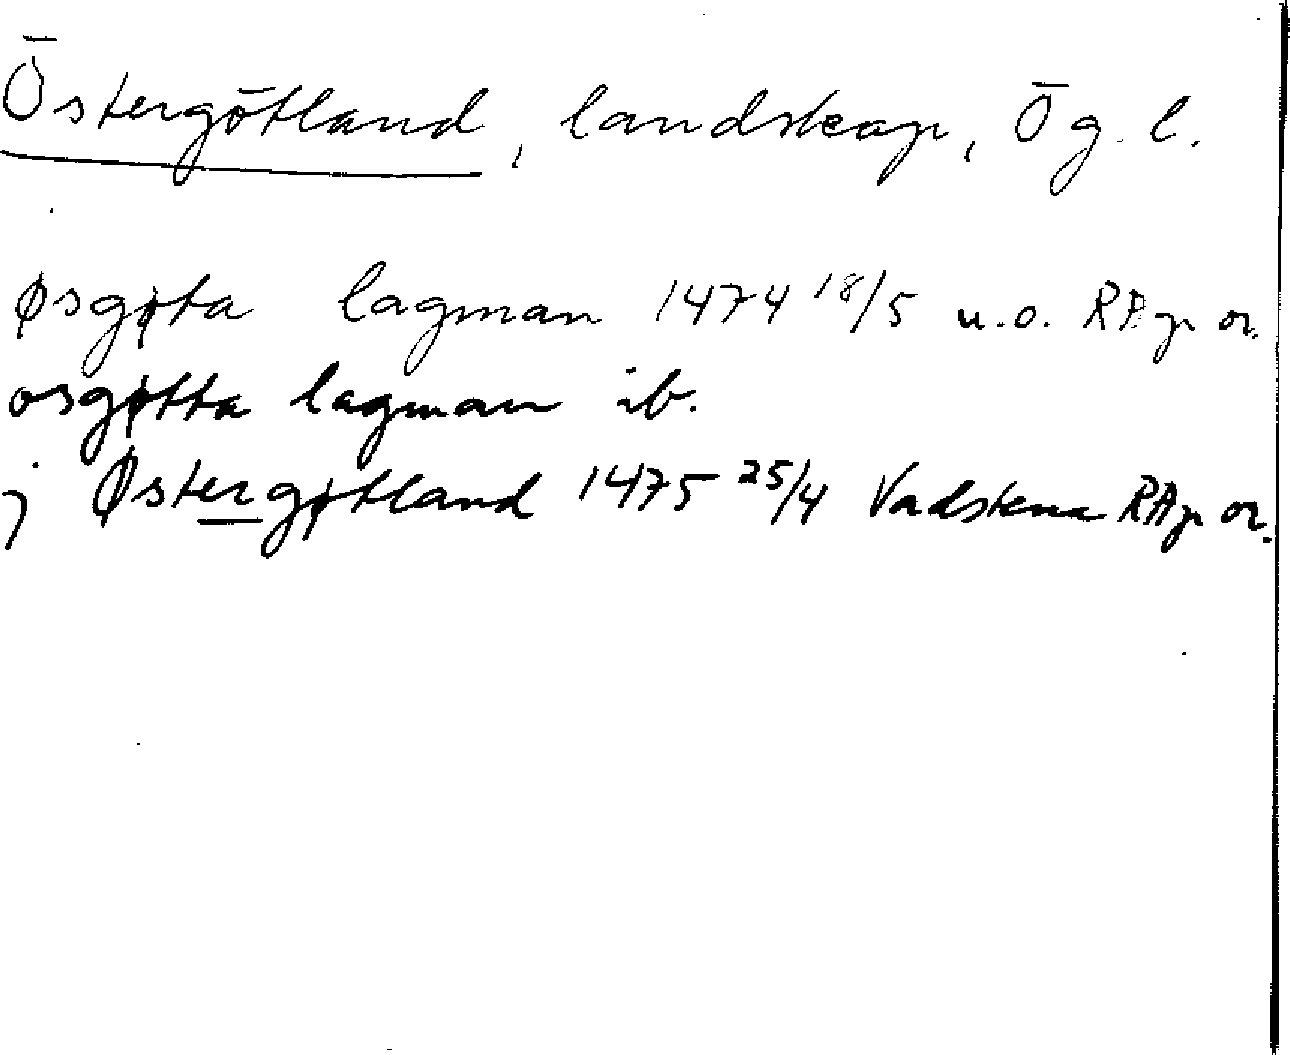 Östergötland, landskap, Ög. l.
Øsgøta lagman 1474 18/5 u.o. RAp or.
osgøtta lagman ib.
j Østergøtland 1475 25/4 Vadstena RAp or.